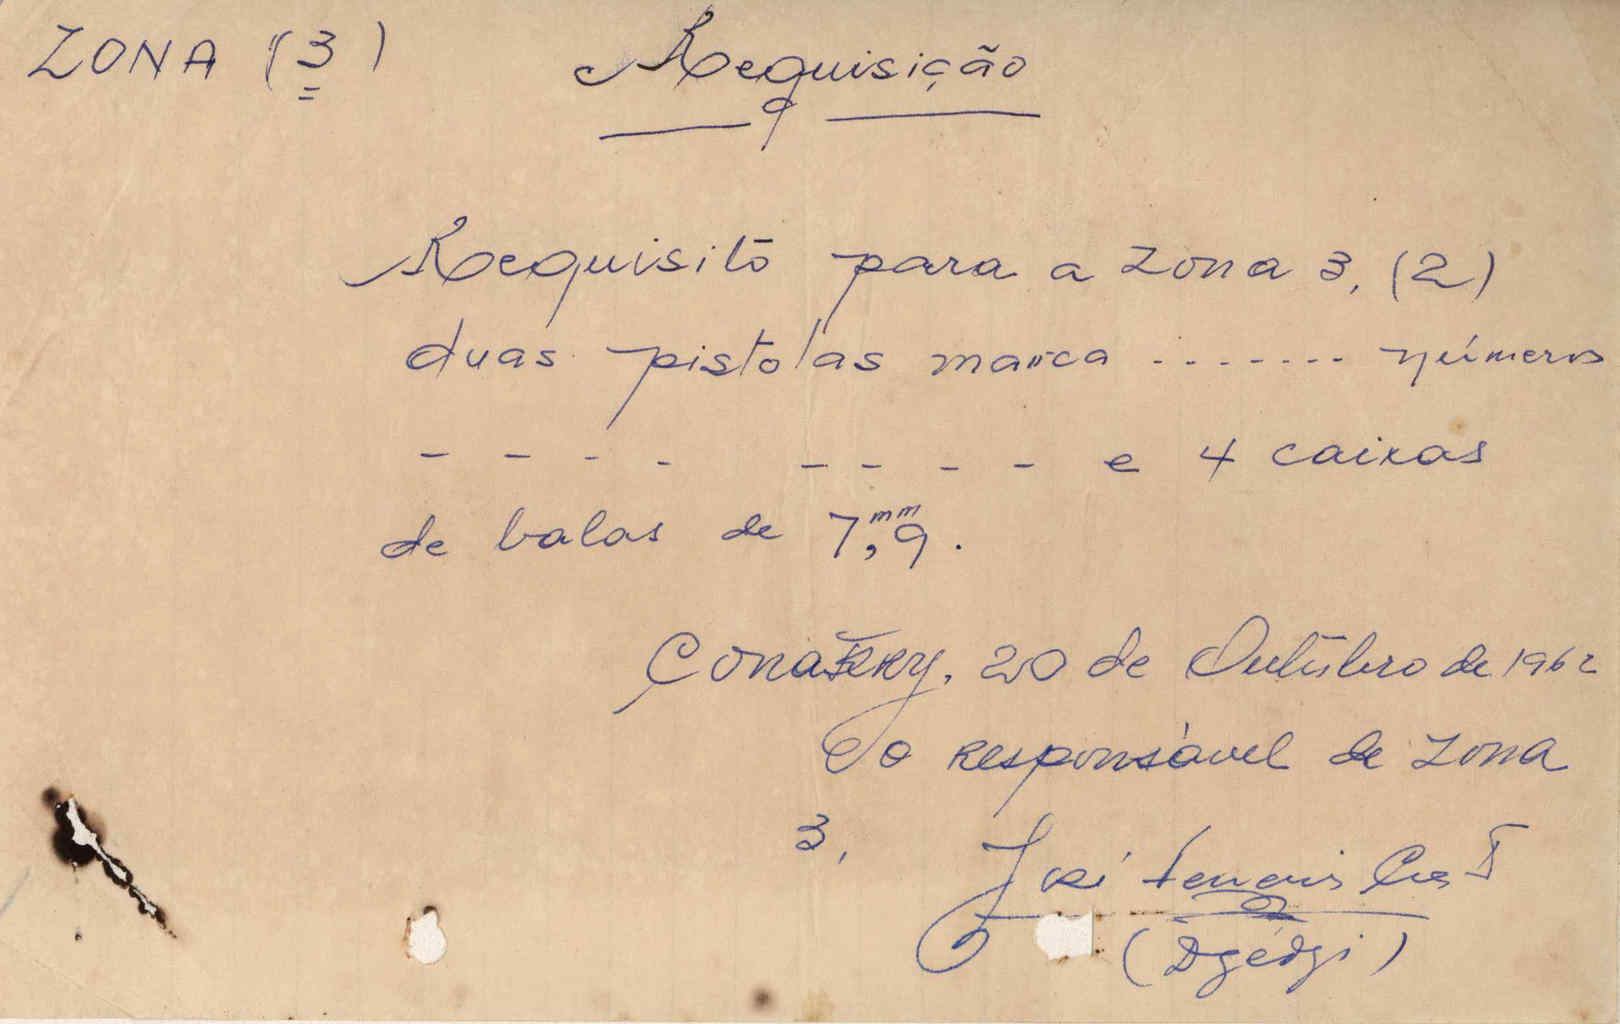 ZONA (3)
Requisição
Requisito para a zona 3, (2)
duas pistolas marca ....... números
- - - - - - - - e 4 caixas
de balas de 7,9 mm.
Conakry, 20 de Outubro de 1962
O responsável de zona
3,
José
(Dgédji)